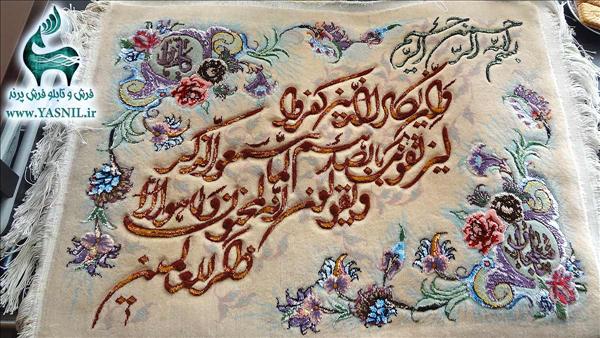 بسم الله الرحمن الرحیم
وان یکاد الذین کفروا
لیزلقونک بابصارهم لما سمعوا الذکر
و یقولون انه لمجنون و ما هو الا
ذکر للعالمین
فرش و تابلو فرش پرند
www.YASNIL.ir